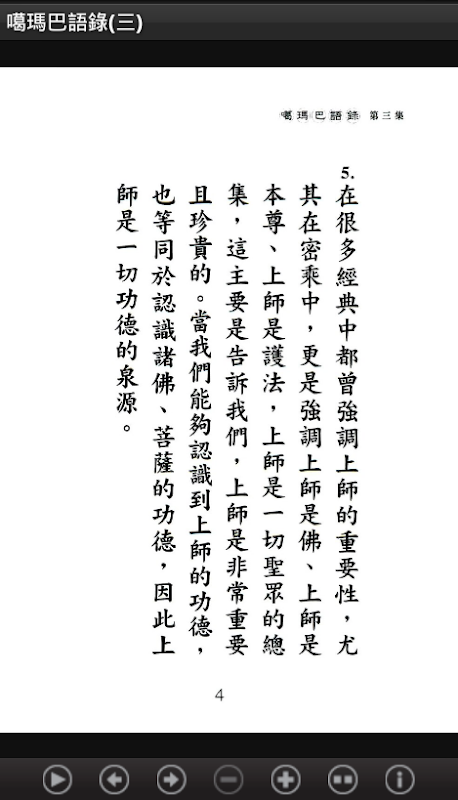 噶瑪巴語錄(三)
噶瑪巴語錄 第三集
5.
在很多經典中都曾強調上師的重要性，尤
其在密乘中，更是強調上師是佛、上師是
本尊、上師是護法，上師是一切聖眾的總
集，這主要是告訴我們，上師是非常重要
且珍貴的。當我們能夠認識到上師的功德，
也等同於認識諸佛、菩薩的功德，因此上
師是一切功德的泉源。
4